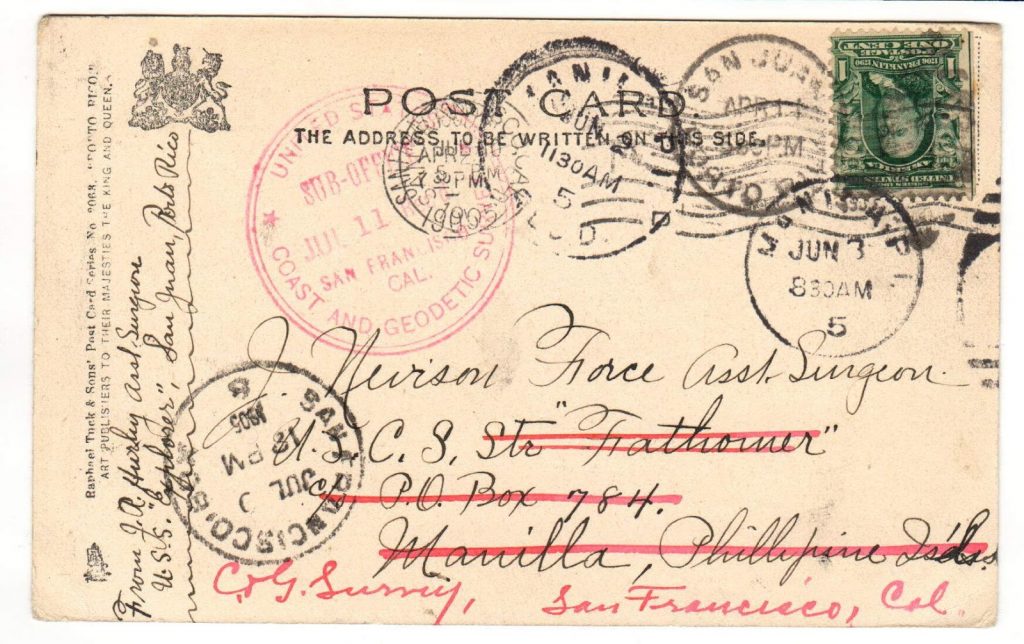 POST CARD.
THE ADDRESS TO BE WRITTEN ON THIS SIDE.
Raphael Tuck & Sons' Post Card Series No. "PORTO RICO."
ART PUBLISHERS TO THEIR MAJESTIES THE KING AND QUEEN.
From J. A. Hurley Asst Surgeon
U.S.S. "Explorer", San Juan Porto Rico
UNITED
SUB-OFFICE
JUL 11
SAN FRANCISCO
CAL.
COAST AND GEODETIC SURVEY
SAN JUAN
APR
PM
1905
MANILA
JUN
1130AM
5
SAN JUAN
APR
PM
ONE CENT
POSTAGE
1706 FRANKLIN 1790
1
1
MANILA, P.I.
JUN 3
830AM
5
J. Nevison Force Asst. Surgeon.
U.S. C. S. Str "Fathomer"
c/o P.O. Box 784.
Manilla, Phillipine Isds
C & G. Survey, San Francisco, Cal.
SAN FRANCISCO
JUL
PM
1905